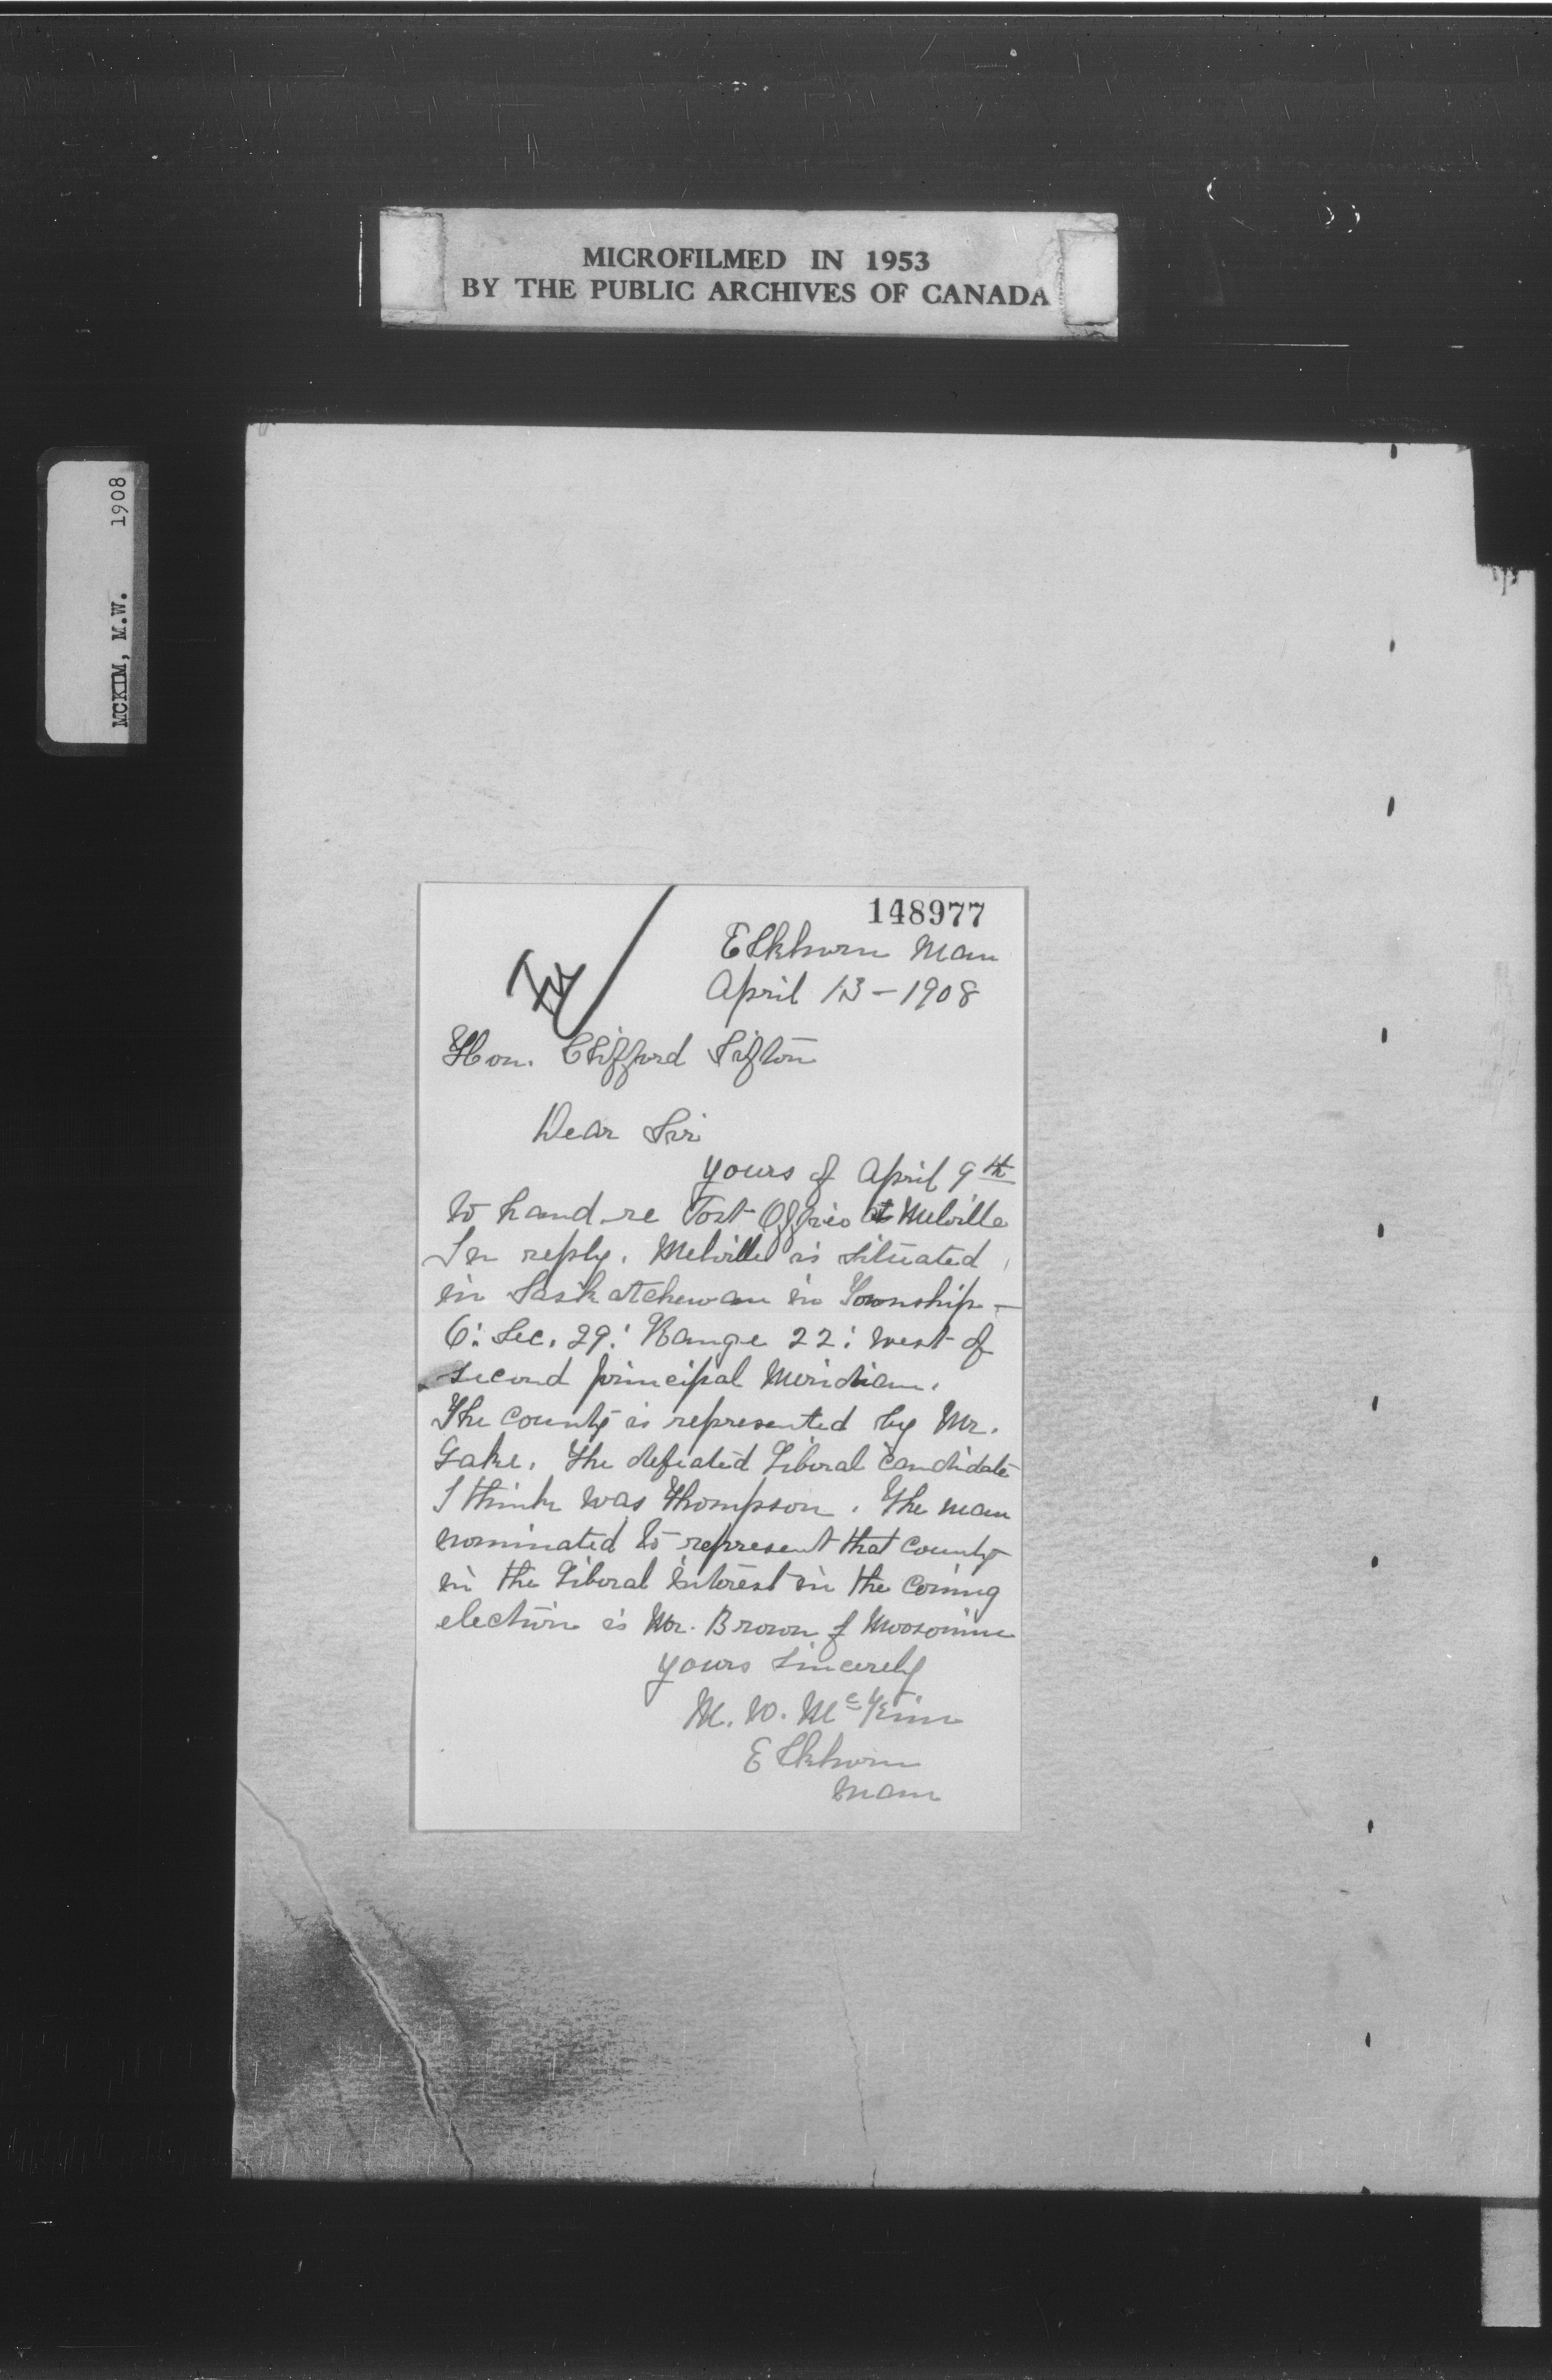 MICROFILMED IN 1953
BY THE PUBLIC ARCHIVES OF CANADA
MCKIM, M.W. 1908
148977
Elkhorn Man
April 13 - 1908
Hon. Clifford Sifton
Dear Sir
Yours of April 9th
to hand re Post Office at Melville
In reply. Melville is situated
in Saskatchewan in Township -
6: Sec. 29: Range 22: west of
second principal Meridian.
The county is represented by Mr.
Lake. The defeated Liberal candidate
I think was Thompson. The man
nominated to represent that county
in the Liberal interest in the coming
election is Mr. Brown of Moosomin
Yours Sincerely
M. W. McKim
Elkhorn
Man